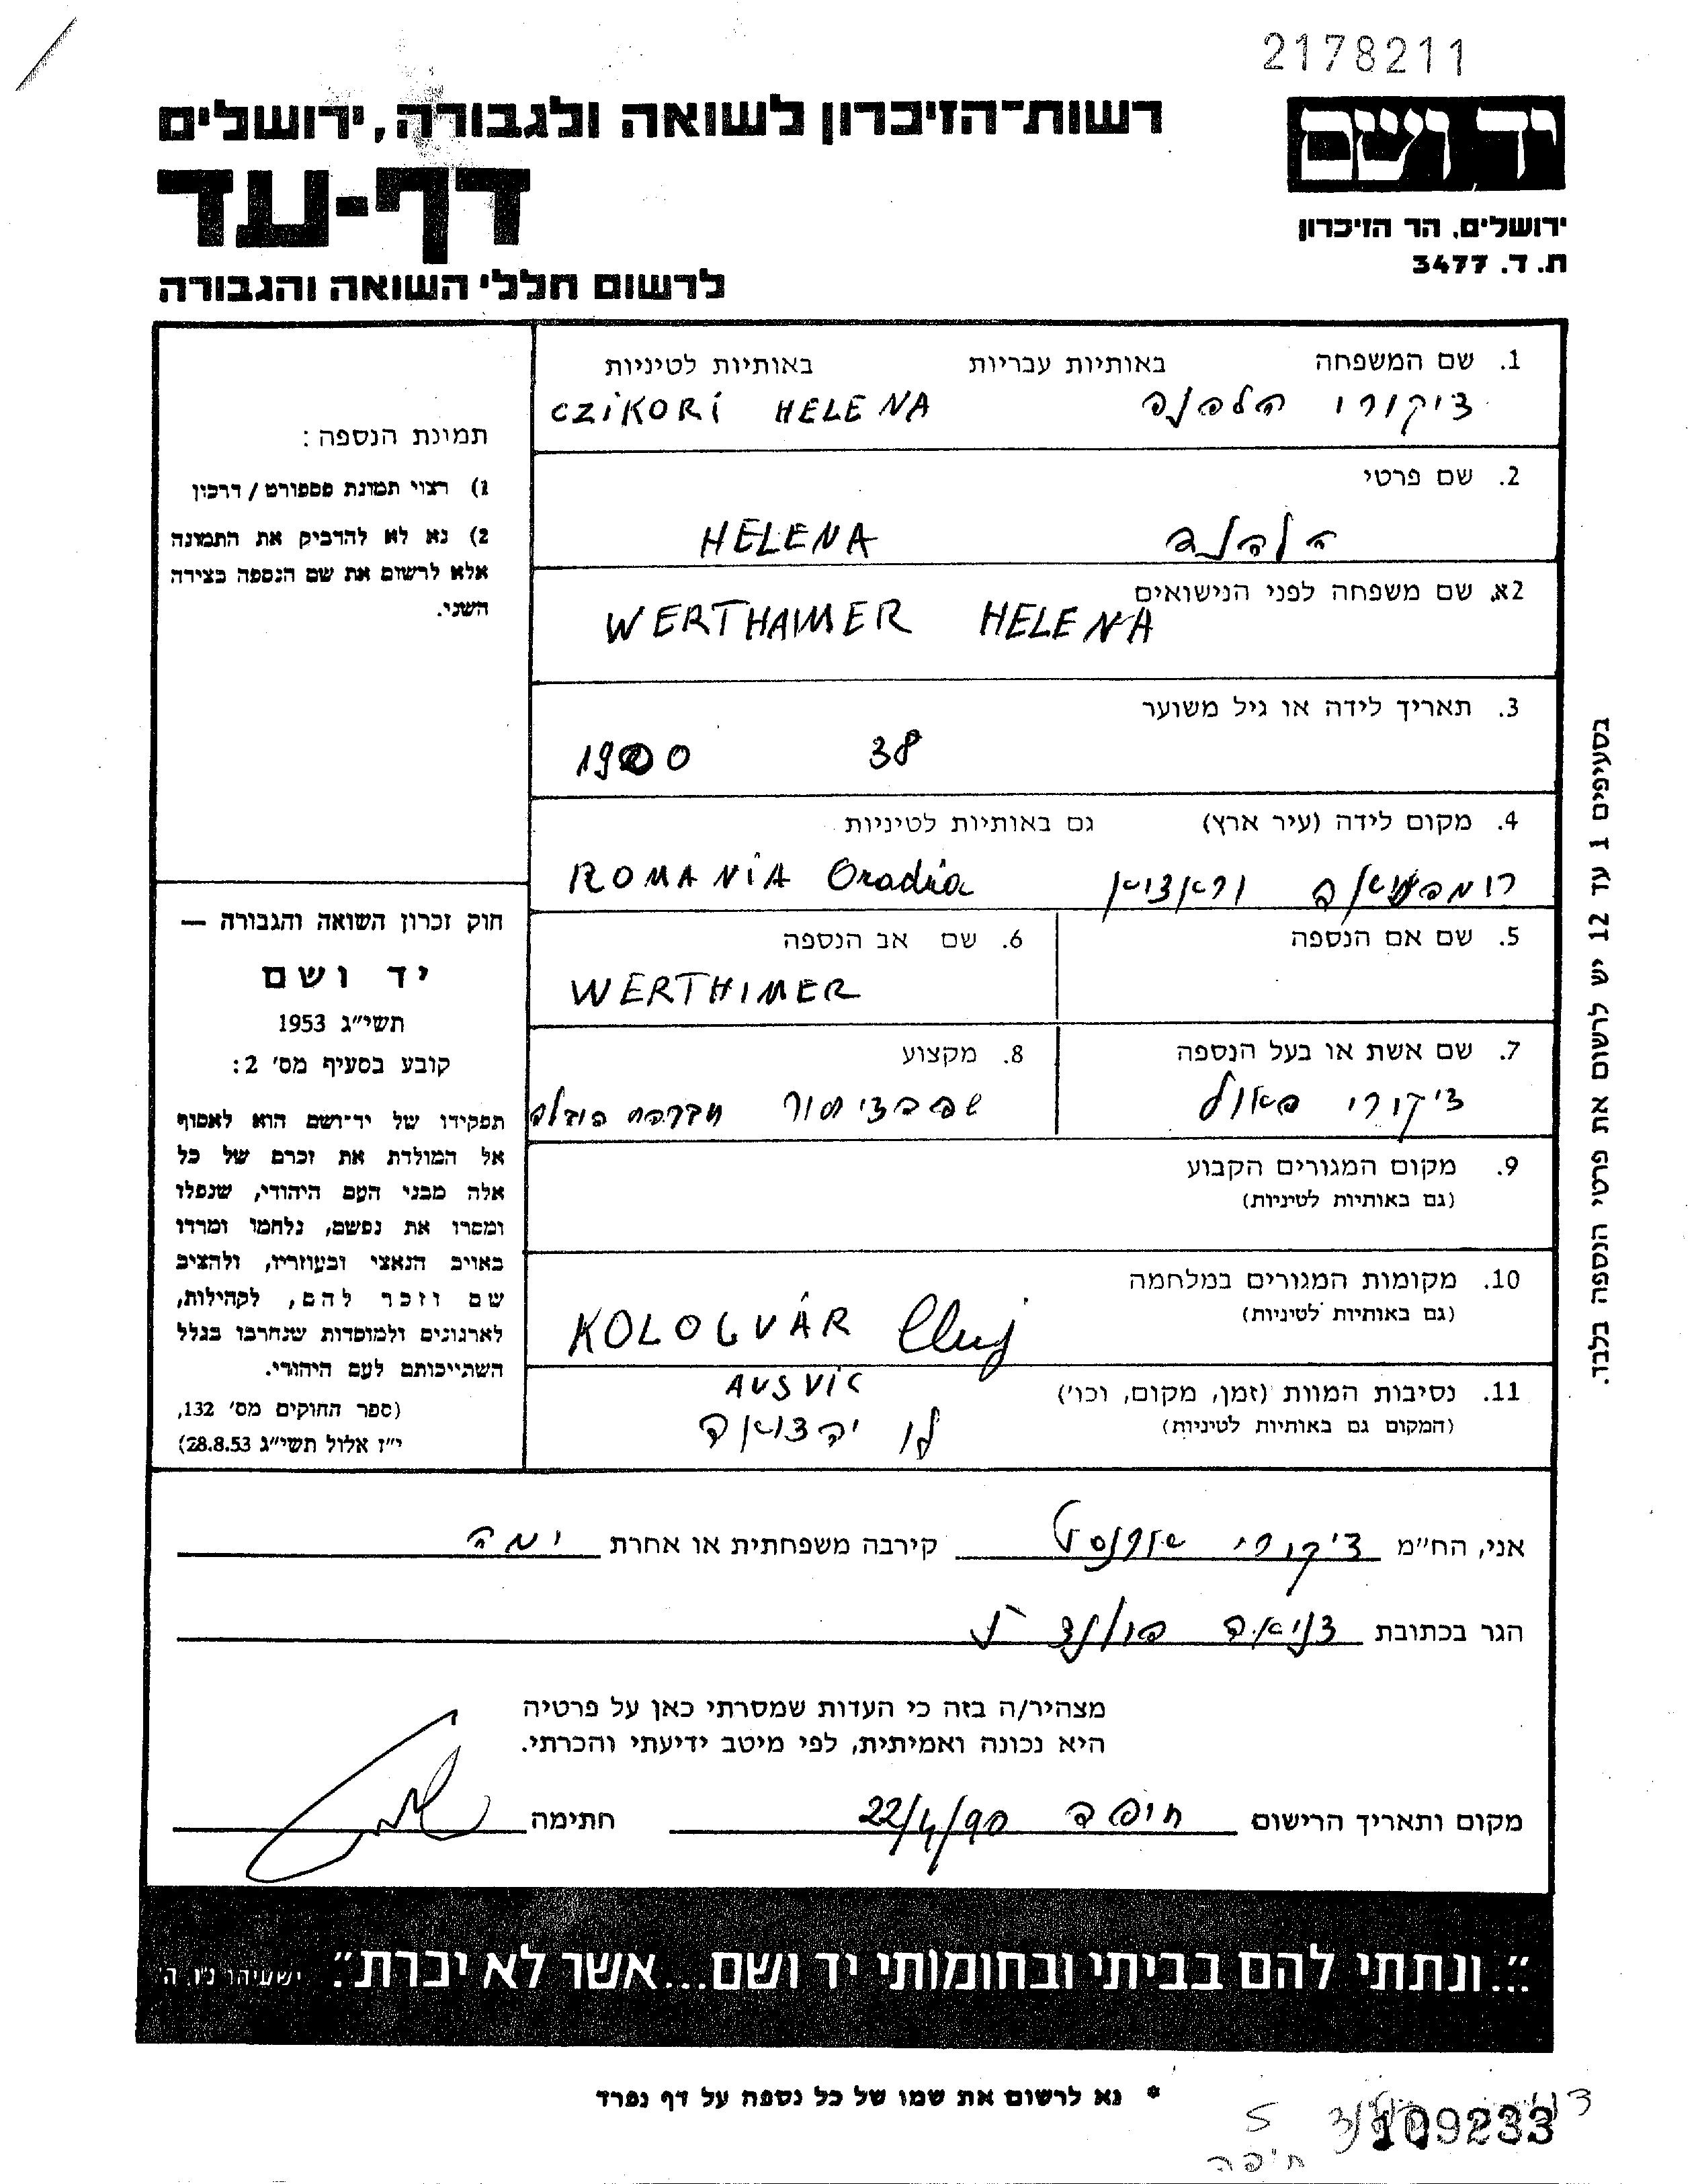 2178211
יד ושם
ירושלים, הר הזיכרון
ת. ד. 3477
רשות-הזיכרון לשואה ולגבורה, ירושלים
דף-עד
לרשום חללי השואה והגבורה
1. שם המשפחה באותיות עבריות באותיות לטיניות
ציקורי הלנה CZIKORI HELENA
2. שם פרטי
הלנה HELENA
2א. שם משפחה לפני הנישואים
WERTHAIMER HELENA
3. תאריך לידה או גיל משוער
1900 38
4. מקום לידה (עיר ארץ) גם באותיות לטיניות
ROMANIA Oradia
5. שם אם הנספה
6. שם אב הנספה
WERTHIMER
7. שם אשת או בעל הנספה
ציקורי פאול
8. מקצוע
9. מקום המגורים הקבוע
(גם באותיות לטיניות)
10. מקומות המגורים במלחמה
(גם באותיות לטיניות)
KOLOGVÁR Cluj
11. נסיבות המוות (זמן, מקום, וכו')
(המקום גם באותיות לטיניות)
AUSVIC
לו
תמונת הנספה:
1) רצוי תמונת פספורט / דרכון
2) נא לא להדביק את התמונה
אלא לרשום את שם הנספה בצידה
השני.
חוק זכרון השואה והגבורה —
יד ושם
תשי"ג 1953
קובע בסעיף מס' 2:
תפקידו של יד־ושם הוא לאסוף
אל המולדת את זכרם של כל
אלה מבני העם היהודי, שנפלו
ומסרו את נפשם, נלחמו ומרדו
באויב הנאצי ובעוזריו, ולהציב
שם וזכר להם, לקהילות,
לארגונים ולמוסדות שנחרבו בגלל
השתייכותם לעם היהודי.
(ספר החוקים מס' 132,
י"ז אלול תשי"ג 28.8.53)
בסעיפים 1 עד 12 יש לרשום את פרטי הנספה בלבד.
אני, הח"מ ציקורי ארנסט קירבה משפחתית או אחרת
הגר בכתובת
מצהיר/ה בזה כי העדות שמסרתי כאן על פרטיה
היא נכונה ואמיתית, לפי מיטב ידיעתי והכרתי.
מקום ותאריך הרישום חיפה 22/4/90 חתימה
"...ונתתי להם בביתי ובחומותי יד ושם...אשר לא יכרת". ישעיהו נו, ה
* נא לרשום את שמו של כל נספה על דף נפרד
109233
5
חיפה